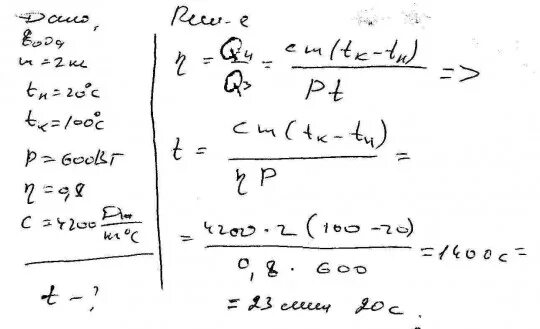 Дано:
вода
m = 2 кг
tн = 20°C
tк = 100°C
P = 600 Вт
η = 0,8
c = 4200 Дж/кг°C
t - ?
Реш-е
η = Qч/Qз = cm(tк - tн)/Pt =>
t = cm(tк - tн)/ηP =
= 4200 · 2 (100 - 20)/0,8 · 600 = 1400 c =
= 23 мин 20 c.